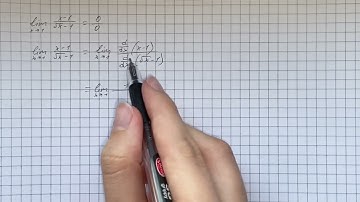 lim x→1 x-1/√x-1 = 0/0
lim x→1 x-1/√x-1 = lim x→1 d/dx(x-1)/d/dx(√x-1)
= lim x→1